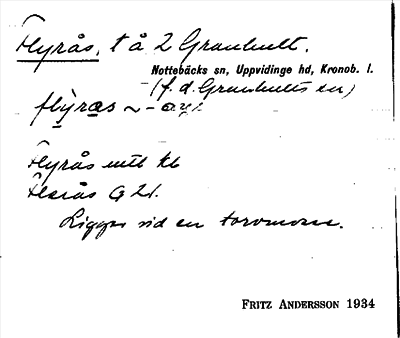 Flyrås, t å 2 Granhult.
Nottebäcks sn, Uppvidinge hd, Kronob. l.
(f. d. Granhults sn)
flỳras ~ -
Flyrås utb kb
Flerås G 21.
Ligger vid en torvmosse.
FRITZ ANDERSSON 1934